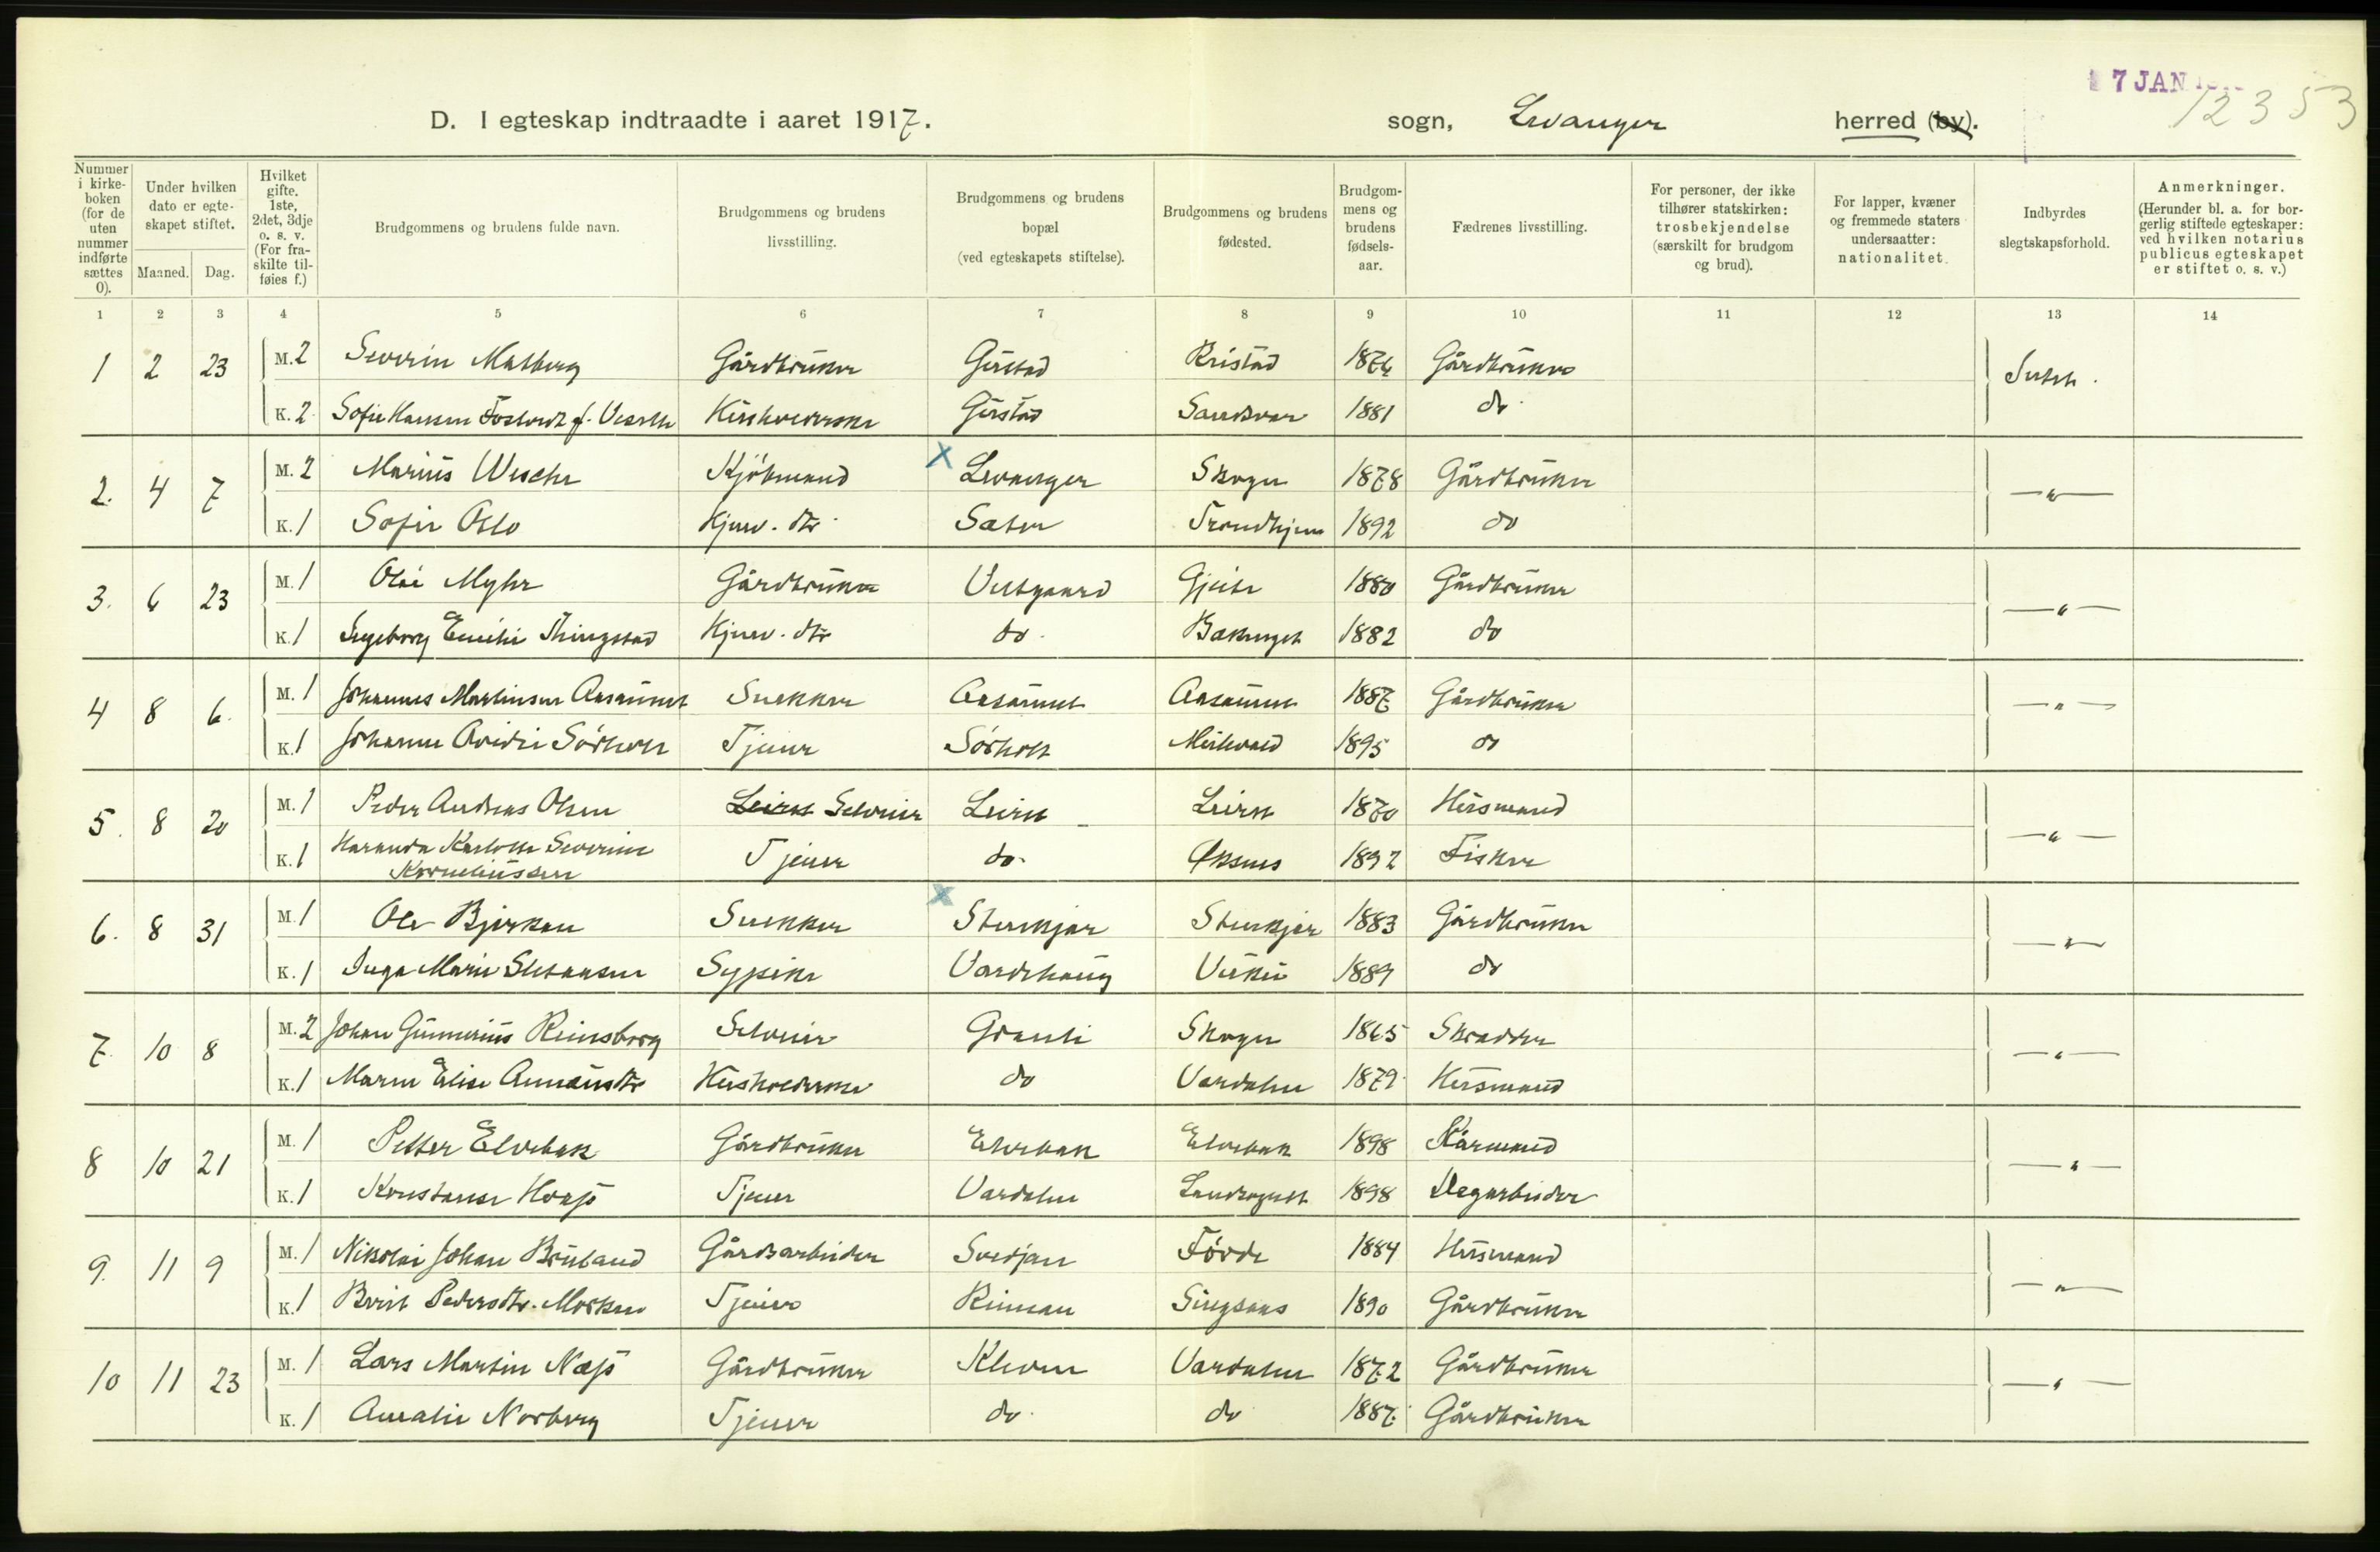 7 JAN
12353
D. I egteskap indtraadte i aaret 1917.
sogn, Levanger herred (by).
Nummer i kirkeboken (for de uten nummer indførte sættes 0).
Under hvilken dato er egteskapet stiftet.
Maaned. Dag.
Hvilket gifte. 1ste, 2det, 3dje o. s. v. (For fraskilte tilføies f.)
Brudgommens og brudens fulde navn.
Brudgommens og brudens livsstilling.
Brudgommens og brudens bopæl (ved egteskapets stiftelse).
Brudgommens og brudens fødested.
Brudgommens og brudens fødselsaar.
Fædrenes livsstilling.
For personer, der ikke tilhører statskirken: trosbekjendelse (særskilt for brudgom og brud).
For lapper, kvæner og fremmede staters undersaatter: nationalitet.
Indbyrdes slegtskapsforhold.
Anmerkninger. (Herunder bl. a. for borgerlig stiftede egteskaper: ved hvilken notarius publicus egteskapet er stiftet o. s. v.)
1 2 3 4 5 6 7 8 9 10 11 12 13 14
1 2 23 M. 2 Severin Matberg Gårdbruker Gustad Ristad 1876 Gårdbruker
K. 2 Sofie Hansen Husholderske Gustad 1881 do
2. 4 7 M. 2 Marius Wesche Kjöbmand X Levanger Skogn 1878 Gårdbruker —"—
K. 1 Sofie Oslo Hjemv. dtr Sæter Trondhjem 1892 do
3. 6 23 M. 1 Olai Myhr Gårdbruker Vestgaard Gjeite 1880 Gårdbruker —"—
K. 1 Ingeborg Emilie Thingstad Hjemv. dtr do. Bakunget 1882 do
4 8 6. M. 1 Johannes Martinsen Aasaunet Snekker Aasaunet Aasaunet 1887 Gårdbruker —"—
K. 1 Johanne Ovidie Sörholt Tjener Sörholt 1895 do
5. 8 20 M. 1 Peder Andreas Olsen Selveier Leiren Leiren 1870 Husmand —"—
K. 1 Haranda Karlotte Severine
Korneliussen Tjener do. Öksnes 1892 Fisker
6. 8 31 M. 1 Ole Bjerkan Snekker X Stenkjær Stenkjær 1883 Gårdbruker —"—
K. 1 Inga Marie Stefansen Sypike Vardehaug 1889 do
7 10 8 M. 2 Johan Gunnerius Reinsberg Selveier Granli Skogn 1865 Skrædder —"—
K. 1 Maren Elise Amundsdtr Husholderske do Værdalen 1879 Husmand
8 10 21 M. 1 Petter Elvebak Gårdbruker Elvebak Elvebak 1898 Kårmand —"—
K. 1 Konstanse Hoasö Tjener Værdalen 1898 Dagarbeider
9. 11 9 M. 1 Nikolai Johan Bruland Gårdsarbeider Svedjan Förde 1884 Husmand —"—
K. 1 Berit Pedersdtr. Morken Tjener Rinnan Singsaas 1890 Gårdbruker
10 11 23 M. 1 Lars Martin Næsö Gårdbruker Kleven Værdalen 1872 Gårdbruker —"—
K. 1 Amalie Norberg Tjener do do 1887 Gårdbruker